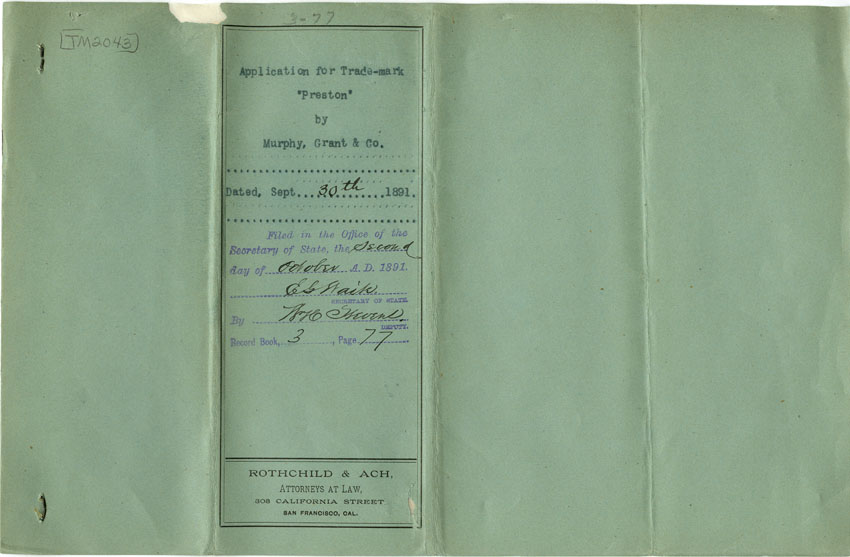 TM2043
3-77
Application for Trade-mark
"Preston"
by
Murphy, Grant & Co.
Dated, Sept. 30th 1891.
Filed in the Office of the
Secretary of State, the Second
day of October A.D. 1891.
E G Waite
SECRETARY OF STATE.
By W H Stevens
DEPUTY.
Record Book, 3, Page 77
ROTHCHILD & ACH,
ATTORNEYS AT LAW,
303 CALIFORNIA STREET
SAN FRANCISCO, CAL.